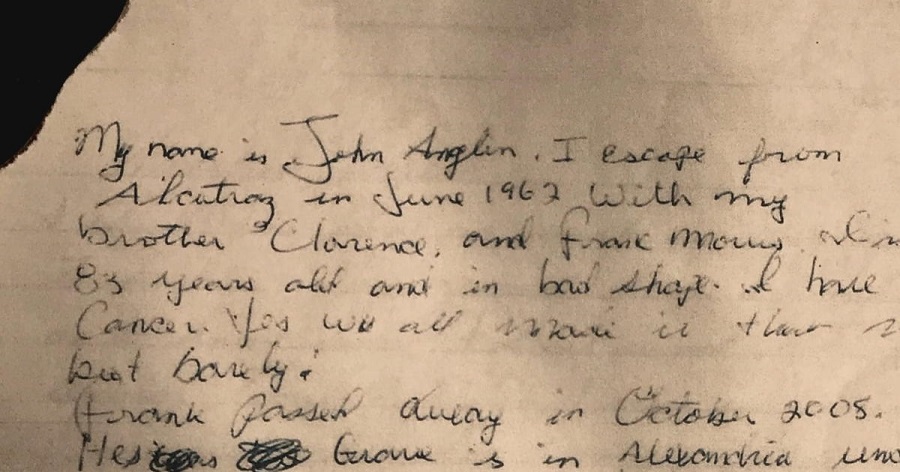 My name is John Anglin. I escape from
Alcatraz in June 1962 With my
brother Clarence, and Frank Morris.
83 years old and in bad shape. I have
Cancer. Yes we all made it that
but barely!
Frank passed away in October 2008.
Hes Grave is in Alexandria